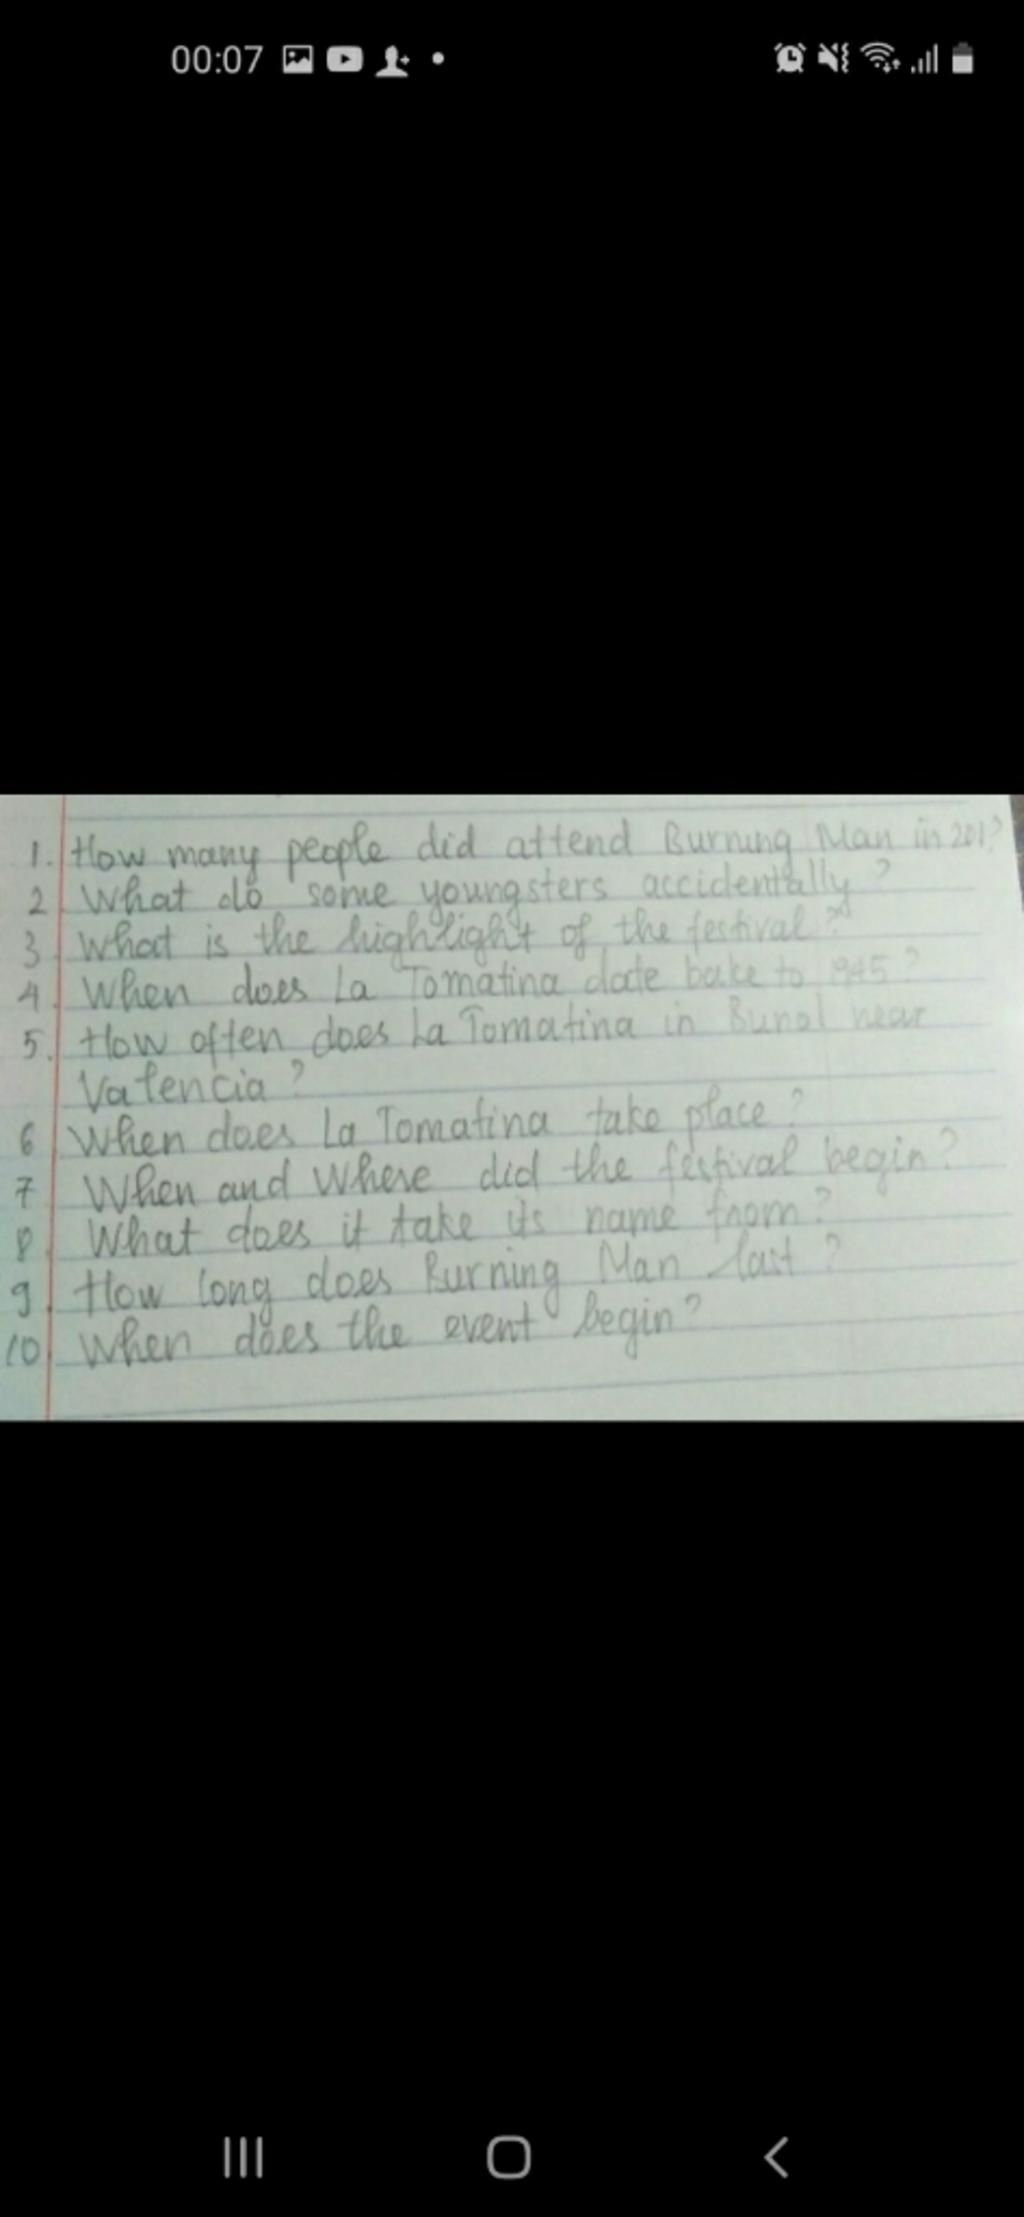 00:07
1. How many people did attend Burning Man in 201?
2. What do some youngsters accidentally?
3. What is the highlight of the festival?
4. When does La Tomatina date bake to 1945?
5. How often does La Tomatina in Bunol near
Valencia?
6 When does La Tomatina take place?
7 When and where did the festival begin?
8. What does it take its name from?
9. How long does Burning Man last?
10 When does the event begin?